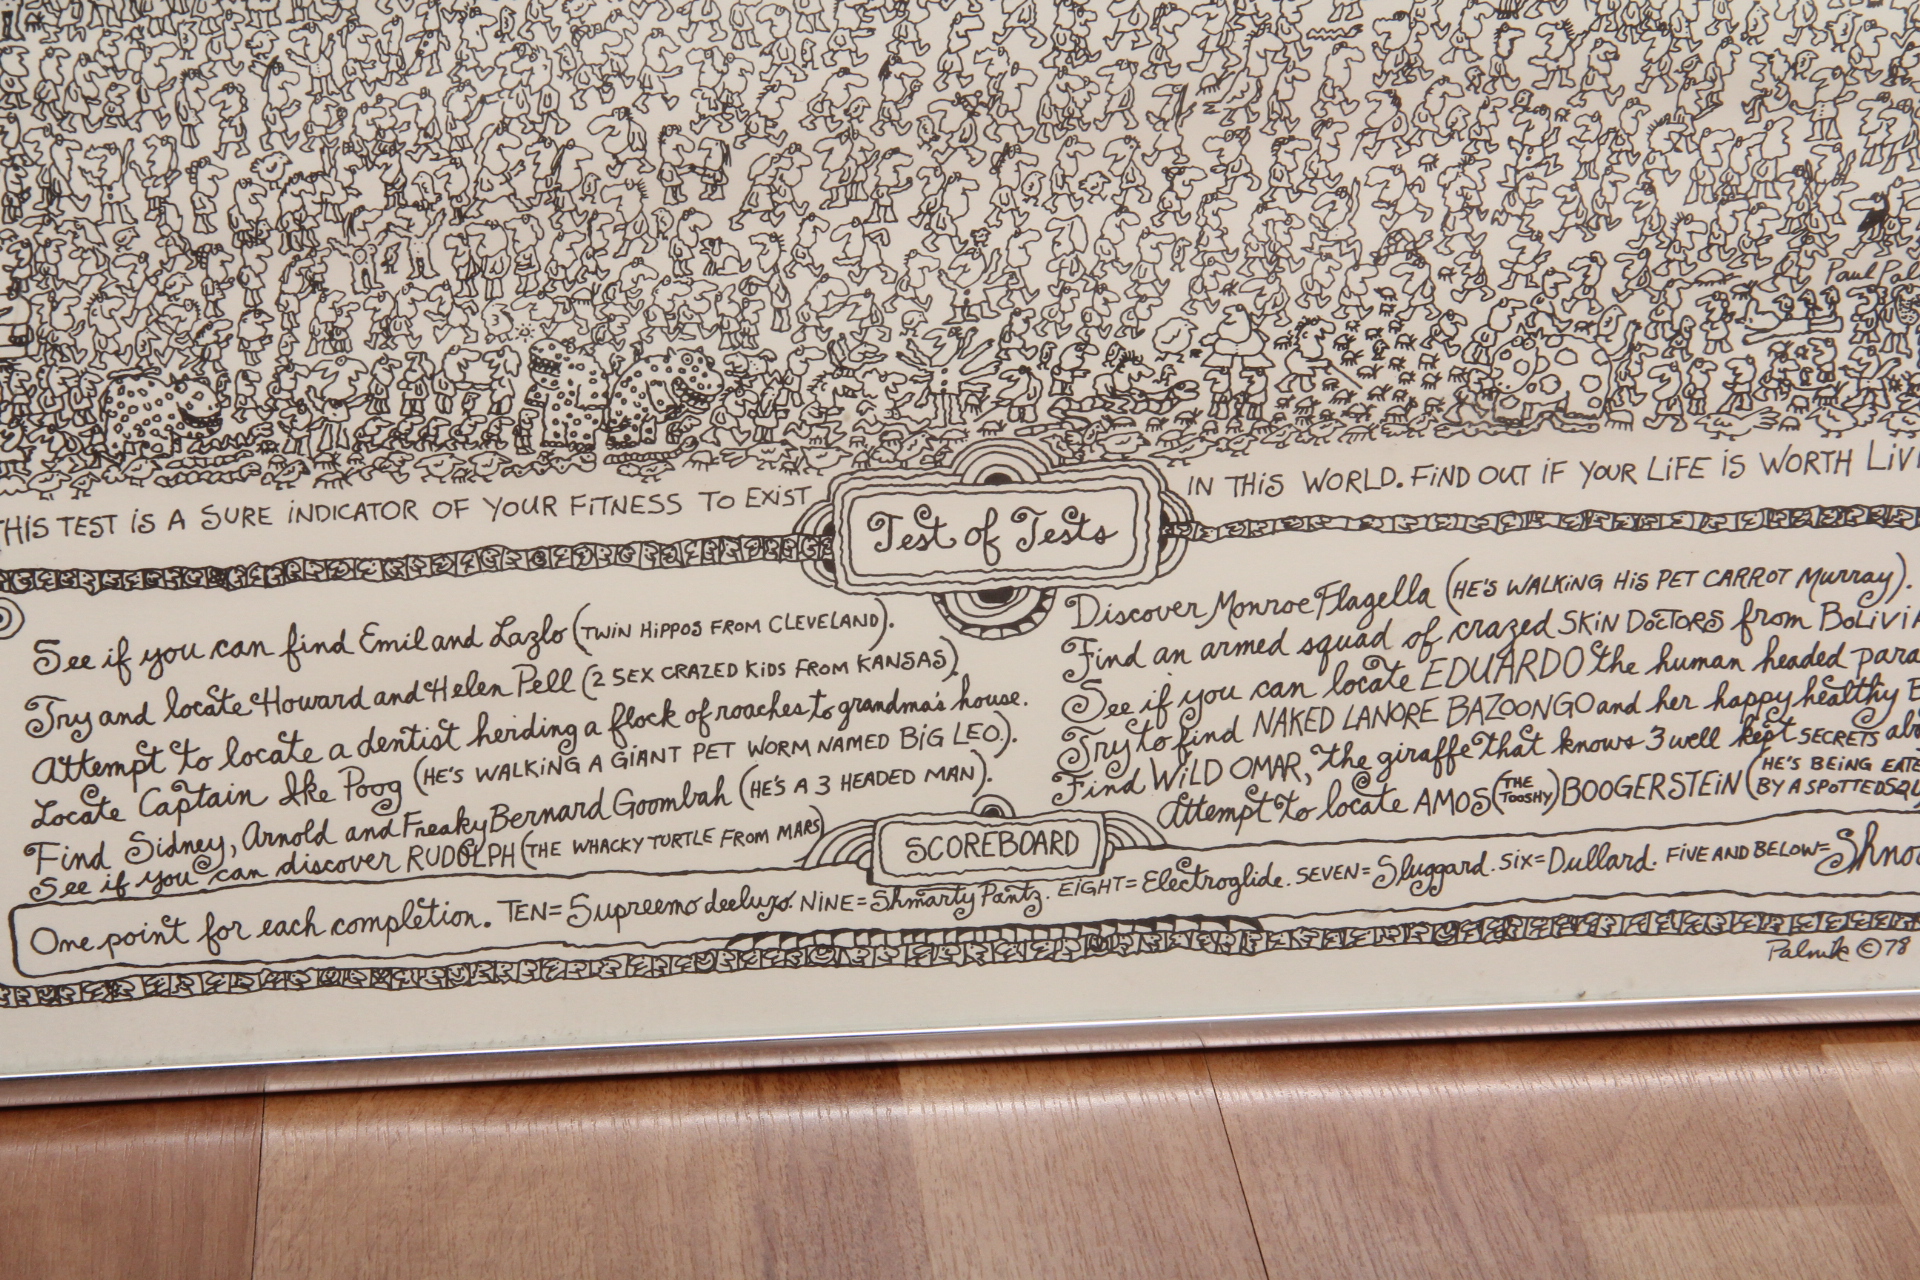 Paul Pal
THIS TEST IS A SURE INDICATOR OF YOUR FITNESS TO EXIST
IN THIS WORLD. FIND OUT IF YOUR LIFE IS WORTH LIVI
Test of Tests
See if you can find Emil and Lazlo (TWIN HIPPOS FROM CLEVELAND).
Try and locate Howard and Helen Pell (2 SEX CRAZED KIDS FROM KANSAS).
Attempt to locate a dentist herding a flock of roaches to grandma's house.
Locate Captain Ike Poog (HE'S WALKING A GIANT PET WORM NAMED BIG LEO.).
Find Sidney, Arnold and Freaky Bernard Goombah (HE'S A 3 HEADED MAN).
See if you can discover RUDOLPH (THE WHACKY TURTLE FROM MARS)
Discover Monroe Flagella (HE'S WALKING HIS PET CARROT Murray).
Find an armed squad of crazed SKIN DOCTORS from BOLIVIA
See if you can locate EDUARDO the human headed para
Try to find NAKED LANORE BAZOONGO and her happy healthy
Find WILD OMAR, the giraffe that knows 3 well kept SECRETS abo
Attempt to locate AMOS (THE TOOSHY) BOOGERSTEIN (HE'S BEING EATE
BY A SPOTTED SQU
SCOREBOARD
One point for each completion. TEN=Supreemo deeluxo. NINE=Shmarty Pantz. EIGHT=Electroglide. SEVEN=Sluggard. SIX=Dullard. FIVE AND BELOW=Shno
Palnik ©78